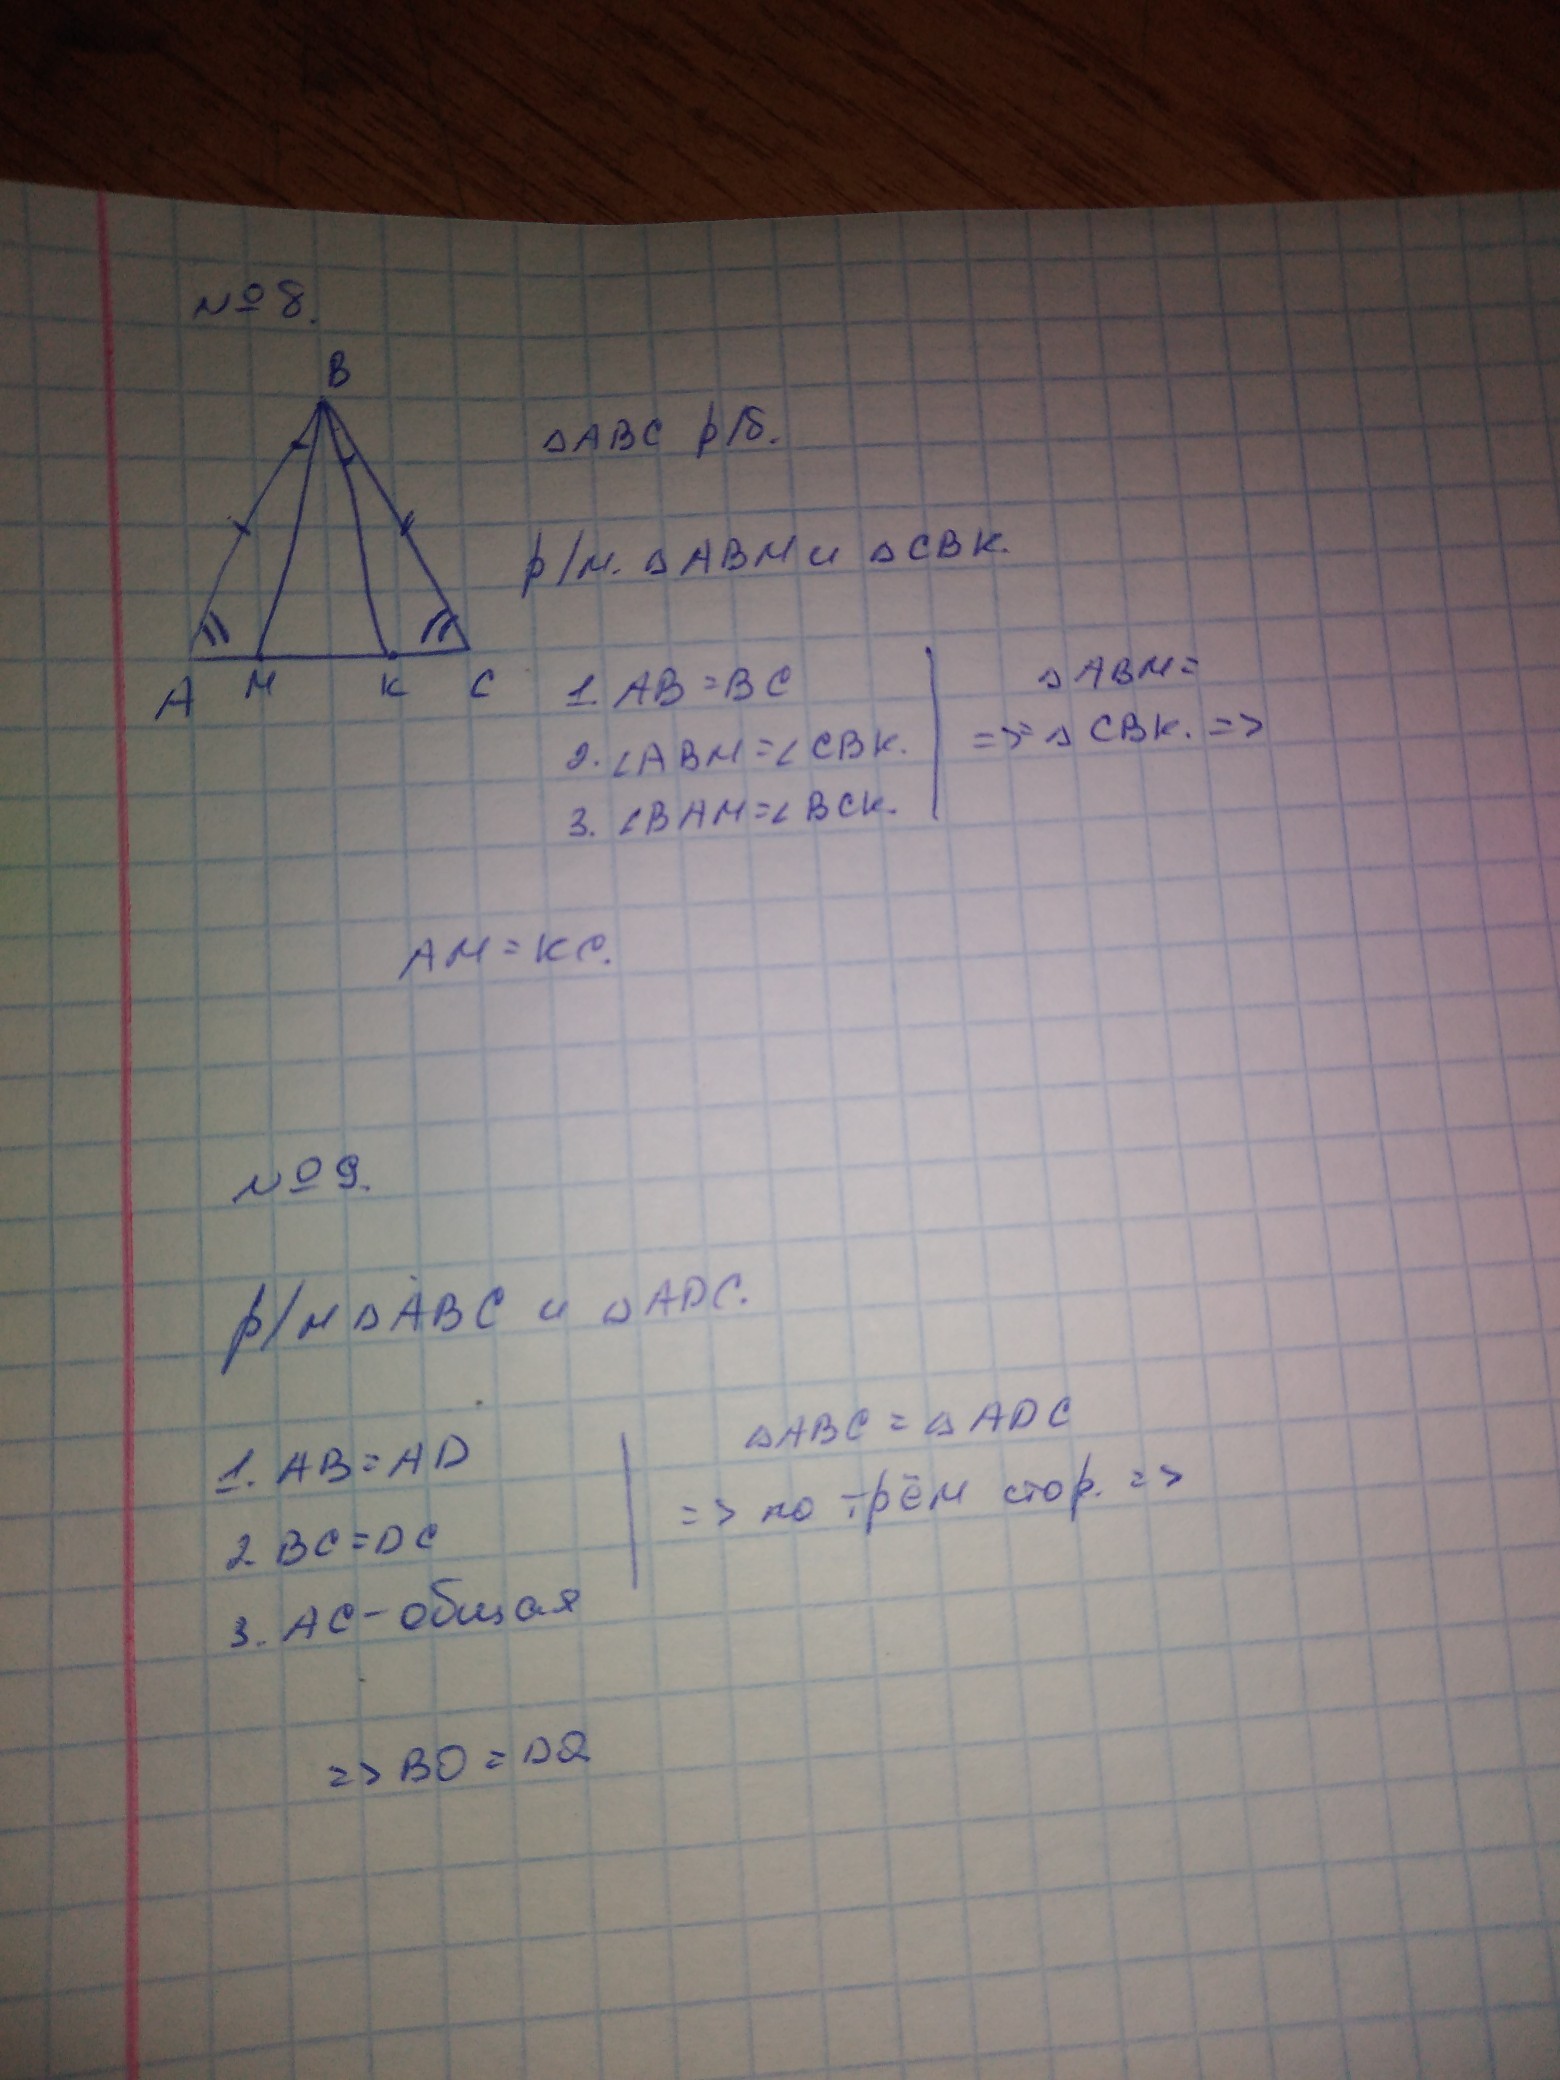 № 8.
B
A M K C
△ABC р/б.
р/м. △ABM и △CBK.
1. AB=BC
2. ∠ABM=∠CBK.
3. ∠BAM=∠BCK.
△ABM=
=>=△CBK. =>
AM=KC.
№ 9.
р/м △ABC и △ADC.
1. AB=AD
2 BC=DC
3. AC-общая
△ABC=△ADC
=> по трём стор. =>
=> BO=DO